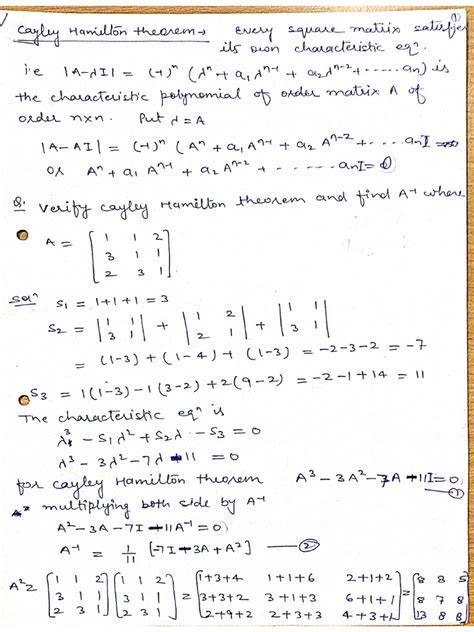 (1)
Cayley Hamilton theorem → Every square matrix satisfies
its own characteristic eqⁿ.
i.e |A-λI| = (-1)ⁿ (λⁿ + a₁λⁿ⁻¹ + a₂λⁿ⁻² + ------ aₙ) is
the characteristic polynomial of order matrix A of
order n×n. Put λ = A
|A-AI| = (-1)ⁿ (Aⁿ + a₁Aⁿ⁻¹ + a₂ Aⁿ⁻² + ---- aₙI
or Aⁿ + a₁ Aⁿ⁻¹ + a₂Aⁿ⁻² + - - - - - - aₙI = 0
Q: Verify Cayley Hamilton theorem and find A⁻¹ where
A = [1 1 2
3 1 1
2 3 1]
Solⁿ S₁ = 1+1+1 = 3
S₂ = |1 1; 3 1| + |1 2; 2 1| + |1 1; 3 1|
= (1-3) + (1-4) + (1-3) = -2-3-2 = -7
S₃ = 1(1-3) -1(3-2) +2(9-2) = -2-1+14 = 11
The characteristic eqⁿ is
λ³ - S₁λ² + S₂λ - S₃ = 0
λ³ - 3λ² - 7λ - 11 = 0
for Cayley Hamilton theorem A³ - 3A² - 7A - 11I = 0 —①
multiplying both side by A⁻¹
A² - 3A - 7I - 11A⁻¹ = 0
A⁻¹ = 1/11 [-7I - 3A + A²] —②
A² = [1 1 2; 3 1 1; 2 3 1] [1 1 2; 3 1 1; 2 3 1] = [1+3+4 1+1+6 2+1+2; 3+3+2 3+1+3 6+1+1; 2+9+2 2+3+3 4+3+1] = [8 8 5; 8 7 8; 13 8 8]